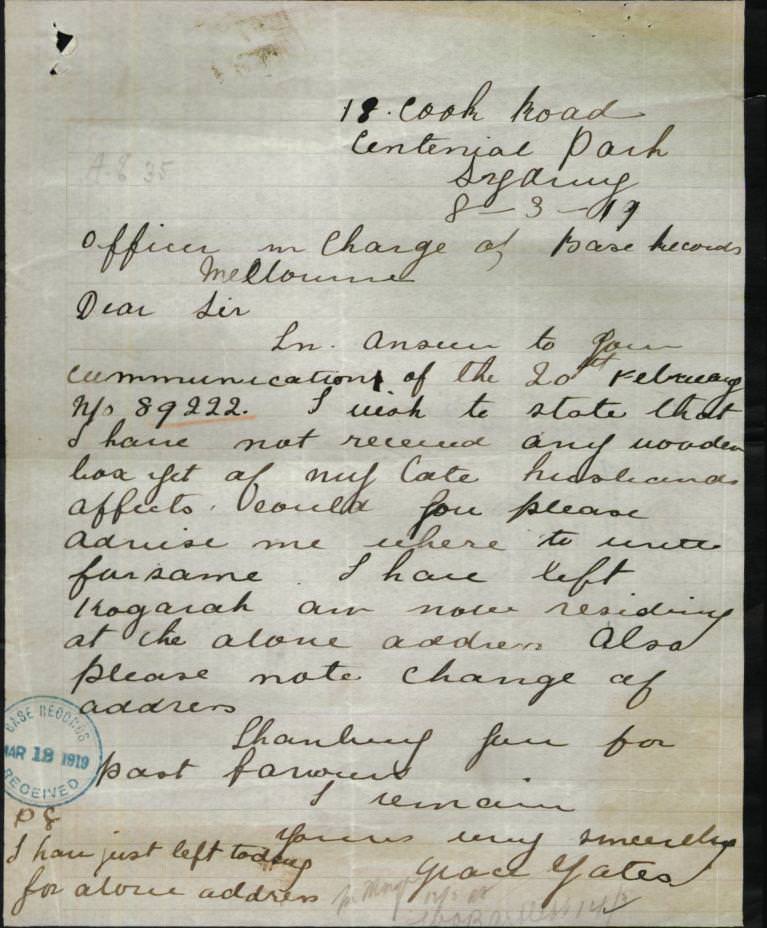 18. Cook Road
Centenial Park
Sydney
8-3-19
A.8 35
Officer in Charge of Base Records
Melbourne
Dear Sir
In. answer to your
communication of the 20th February
N/o 89222. I wish to state that
I have not received any wooden
box yet of my late husbands
affects. Could you please
advise me where to write
for same. I have left
Kogarah am now residing
at the above address Also
please note change of
address
Thanking you for
past favours
I remain
yours very sincerely
Grace Yates
BASE RECORDS
MAR 18 1919
RECEIVED
PS
I have just left today
for above address